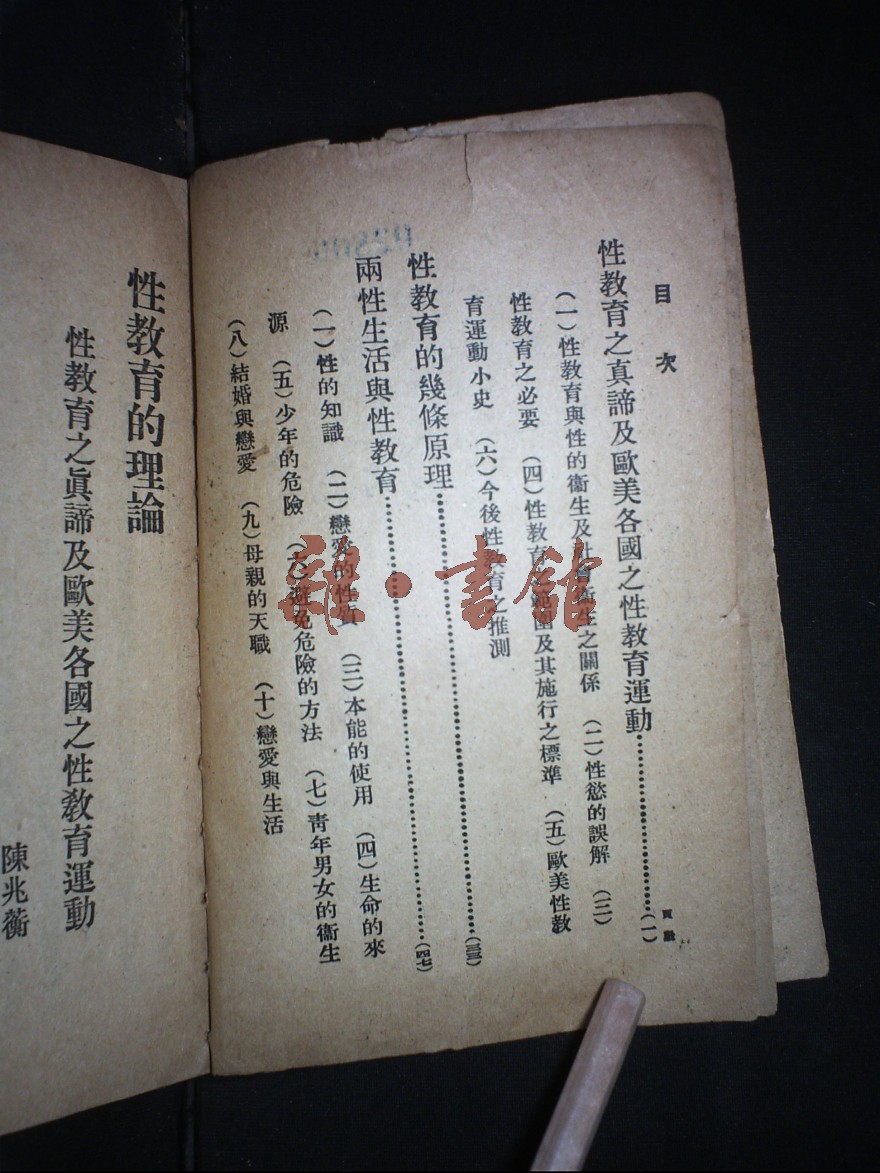 目次
頁數
性教育之真諦及歐美各國之性教育運動⋯⋯(一)
(一)性教育與性的衞生及社會衞生之關係 (二)性慾的誤解 (三)
性教育之必要 (四)性教育之範圍及其施行之標準 (五)歐美性教
育運動小史 (六)今後性教育之推測
性教育的幾條原理⋯⋯(三三)
兩性生活與性教育⋯⋯(四七)
(一)性的知識 (二)戀愛的性質 (三)本能的使用 (四)生命的來
源 (五)少年的危險 (六)避免危險的方法 (七)靑年男女的衞生
(八)結婚與戀愛 (九)母親的天職 (十)戀愛與生活
性教育的理論
性教育之眞諦及歐美各國之性教育運動
陳兆蘅
雜·書館